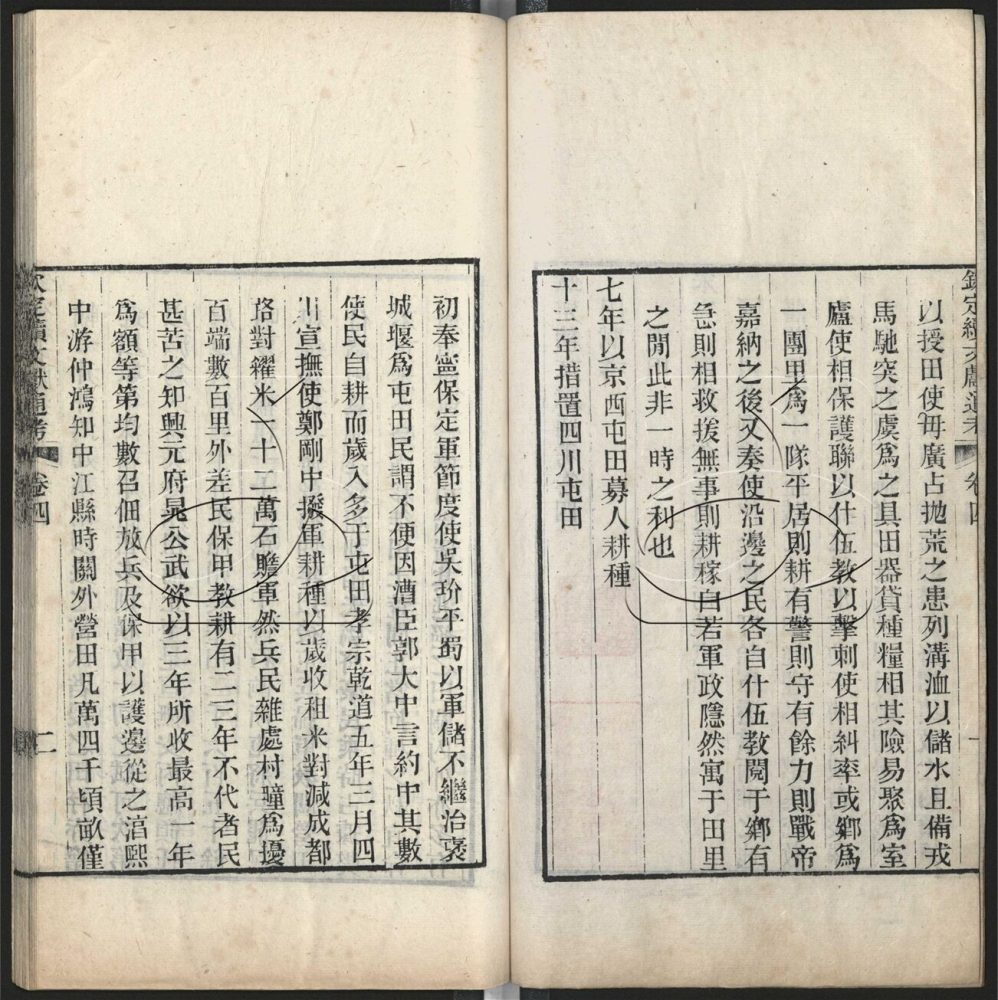 欽定續文獻通考 卷四 一
以授田使毋廣占拋荒之患列溝洫以儲水且備戎
馬馳突之虞爲之具田器貸種糧相其險易聚爲室
廬使相保護聯以什伍教以擊刺使相糾率或鄉爲
一團里爲一隊平居則耕有警則守有餘力則戰帝
嘉納之後又奏使沿邊之民各自什伍教閱于鄉有
急則相救援無事則耕稼自若軍政隱然寓于田里
之閒此非一時之利也
七年以京西屯田募人耕種
十三年措置四川屯田
初奉寧保定軍節度使吳玠平蜀以軍儲不繼治褒
城堰爲屯田民謂不便因漕臣郭大中言約中其數
使民自耕而歲入多于屯田孝宗乾道五年三月四
川宣撫使鄭剛中撥軍耕種以歲收租米對減成都
路對糴米一十二萬石贍軍然兵民雜處村疃爲擾
百端數百里外差民保甲教耕有二三年不代者民
甚苦之知興元府晁公武欲以三年所收最高一年
爲額等第均數召佃放兵及保甲以護邊從之湻熙
中游仲鴻知中江縣時關外營田凡萬四千頃畝僅
欽定續文獻通考 卷四 二